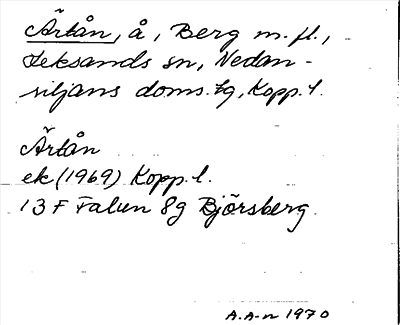 Ärtån, å, Berg m.fl.,
Leksands sn, Nedan-
siljans doms. tg, Kopp. l.
Ärtån
ek (1969) Kopp. l.
13 F Falun 8g Björsberg
A.A-n 1970